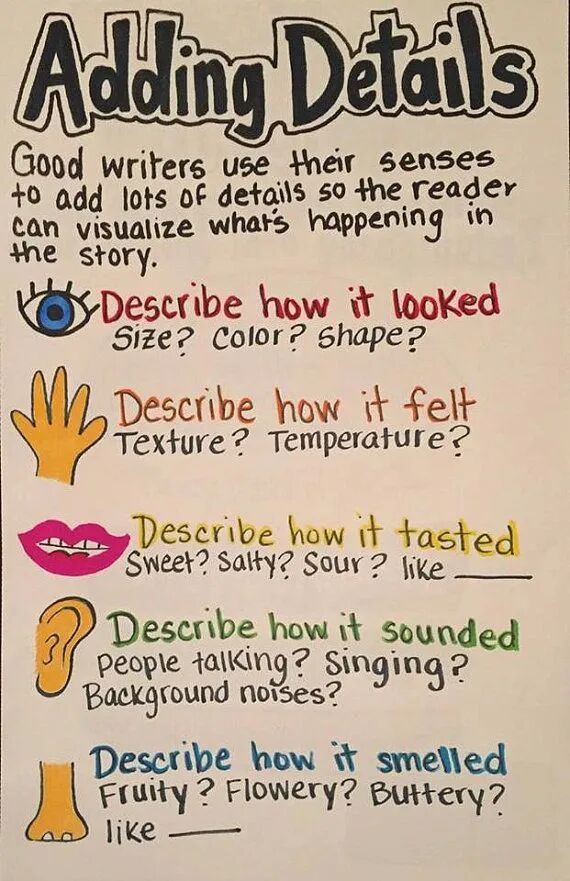 Adding Details
Good writers use their senses
to add lots of details so the reader
can visualize what's happening in
the story.
Describe how it looked
Size? Color? Shape?
Describe how it felt
Texture? Temperature?
Describe how it tasted
Sweet? Salty? Sour? like _____
Describe how it sounded
People talking? Singing?
Background noises?
Describe how it smelled
Fruity? Flowery? Buttery?
like _____